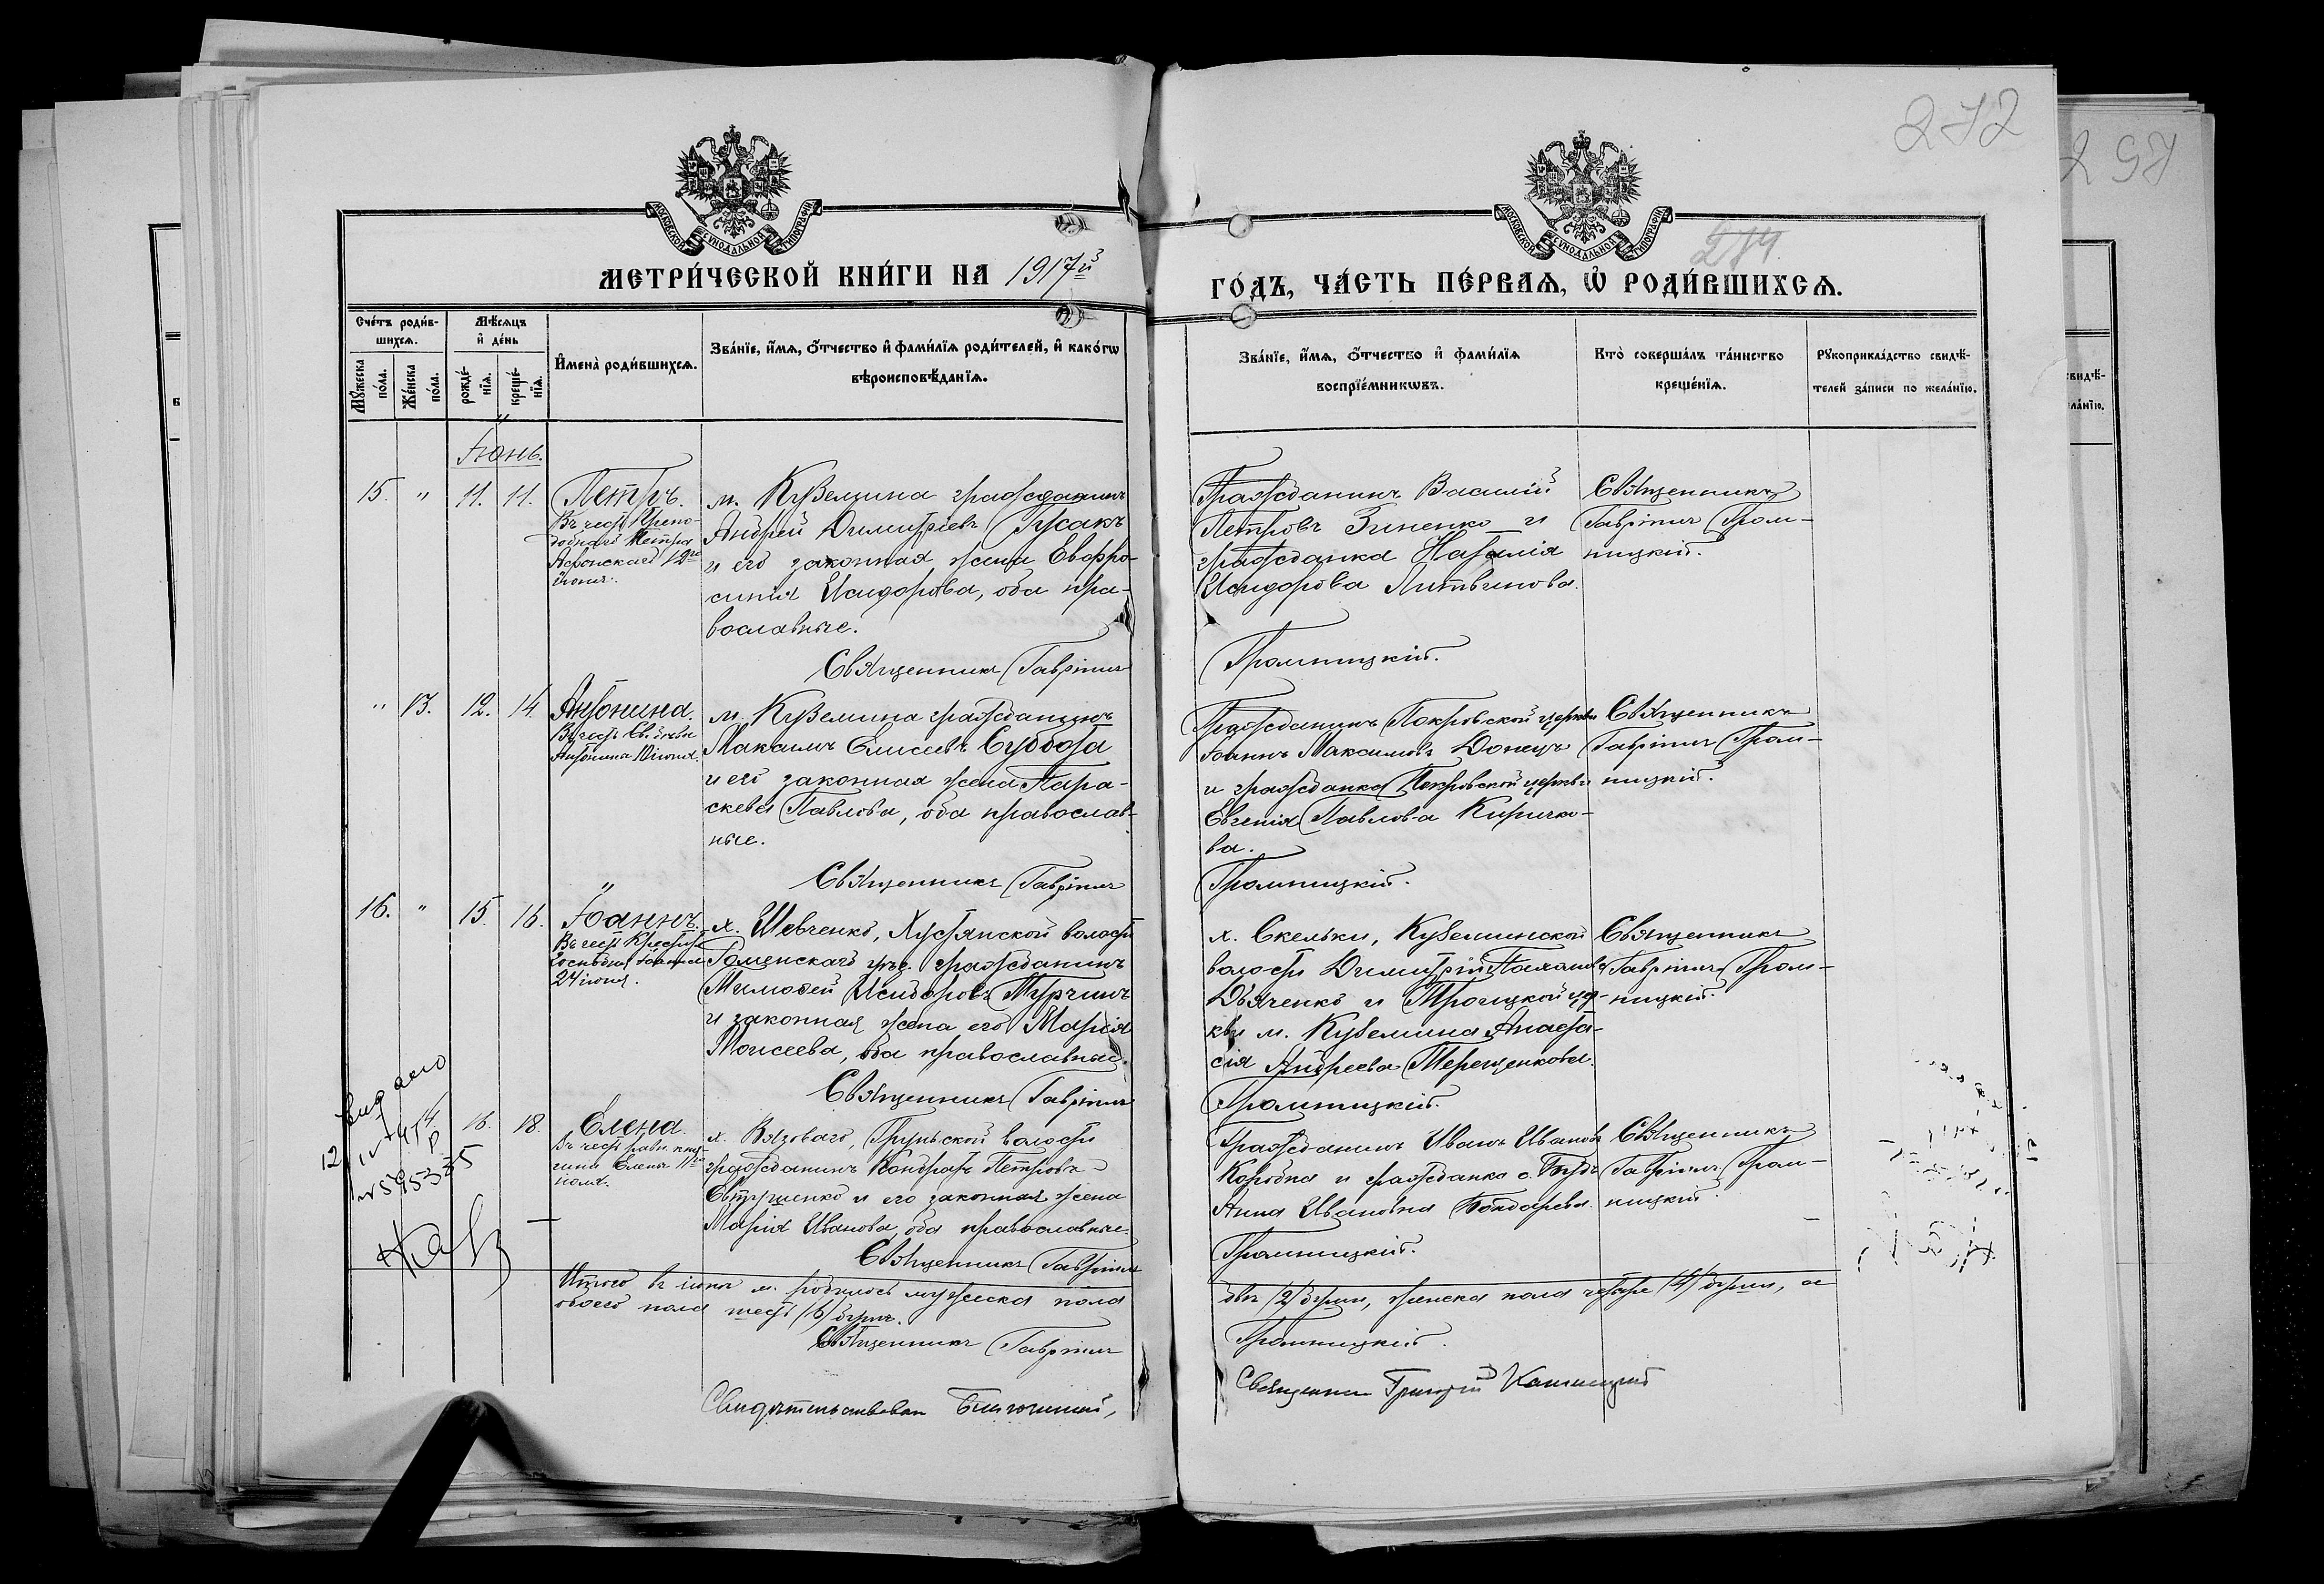 272
297
274
МОСКОВСКОЙ СѴНОДАЛЬНОЙ ТИПОГРАФІИ
МОСКОВСКОЙ СѴНОДАЛЬНОЙ ТИПОГРАФІИ
МЕТРИ́ЧЕСКОЙ КНИ́ГИ НА 1917й
ГО́ДЪ, ЧА́СТЬ ПЕ́РВАѦ, Ѡ҆ РОДИ́ВШИХСѦ.
Сче́тъ роди́в-
шихсѧ.
Мѣ́сѧцъ
и҆ де́нь
Мꙋ́жеска
по́ла.
Же́нска
по́ла.
рожде́-
нїѧ.
креще́-
нїѧ.
И҆мена̀ роди́вшихсѧ.
Зва́нїе, и҆́мѧ, ѻ҆́тчество и҆ фами́лїѧ роди́телей, и҆ како́гѡ
вѣроисповѣ́данїѧ.
Зва́нїе, и҆́мѧ, ѻ҆́тчество и҆ фами́лїѧ
воспрїе́мникѡвъ.
Кто̀ соверша́лъ та́инство
креще́нїѧ.
Рꙋкоприкла́дство свидѣ́-
телей за́писи по жела́нїю.
Іюнь.
15. " 11. 11. Петръ.
Въ честь Препо-
добнаго Петра
Афонскаго 12го
іюня.
м. Куземина гражданинъ
Андрей Димитріевъ Гусакъ
и его законная жена Евфро-
синія Исидорова, оба пра-
вославные.
Священникъ Гавріилъ
Гражданинъ Василій
Петровъ Зиненко и
гражданка Наталія
Исидорова Литвинова.
Громницкій.
Священникъ
Гавріилъ Гром-
ницкій.
" 13. 12. 14. Антонина.
Въ честь Св.
Антонина іюня.
м. Куземина гражданинъ
Максимъ Елисеевъ Суббота
и его законная жена Пара-
скева Павлова, оба православ-
ные.
Священникъ Гавріилъ
Гражданинъ Покровской церкви
Іоаннъ Максимовъ Донецъ
и гражданка Покровской церкви
Евгенія Павлова Кирично-
ва.
Громницкій.
Священникъ
Гавріилъ Гром-
ницкій.
16. " 15. 16. Іоаннъ.
Въ честь Крестит.
Господня Іоанна
24 іюня.
х. Шевченко, Хустянской волости
уѣз. гражданинъ
Тимофей Исидоровъ
и законная жена его Марія
Моисеева, оба православные.
Священникъ Гавріилъ
х. Скельки, Куземинской
волости Димитрій
Дьяченко и Троицкой цер-
кви м. Куземина Анаста-
сія Андреева Терещенкова.
Громницкій.
Священникъ
Гавріилъ Гром-
ницкій.
16. 18. Елена.
Въ честь равн. кня-
гини Елены 11го
іюля.
х. Вязоваго, Грунской волости
гражданинъ Кондратъ Петровъ
Евтушенко и его законная жена
Марія Иванова, оба православные.
Священникъ Гавріилъ
Гражданинъ Иванъ Ивановъ
Коробка и гражданка с.
Анна Ивановна Бондарева.
Громницкій.
Священникъ
Гавріилъ Гром-
ницкій.
Итого въ іюнѣ м. родилось мужеска пола
два /2/ души, женска пола четыре /4/ души, а
обоего пола шесть /6/ душъ.
Священникъ Гавріилъ
Громницкій.
Свидетельствовалъ Благочинный,
Священникъ Григорій